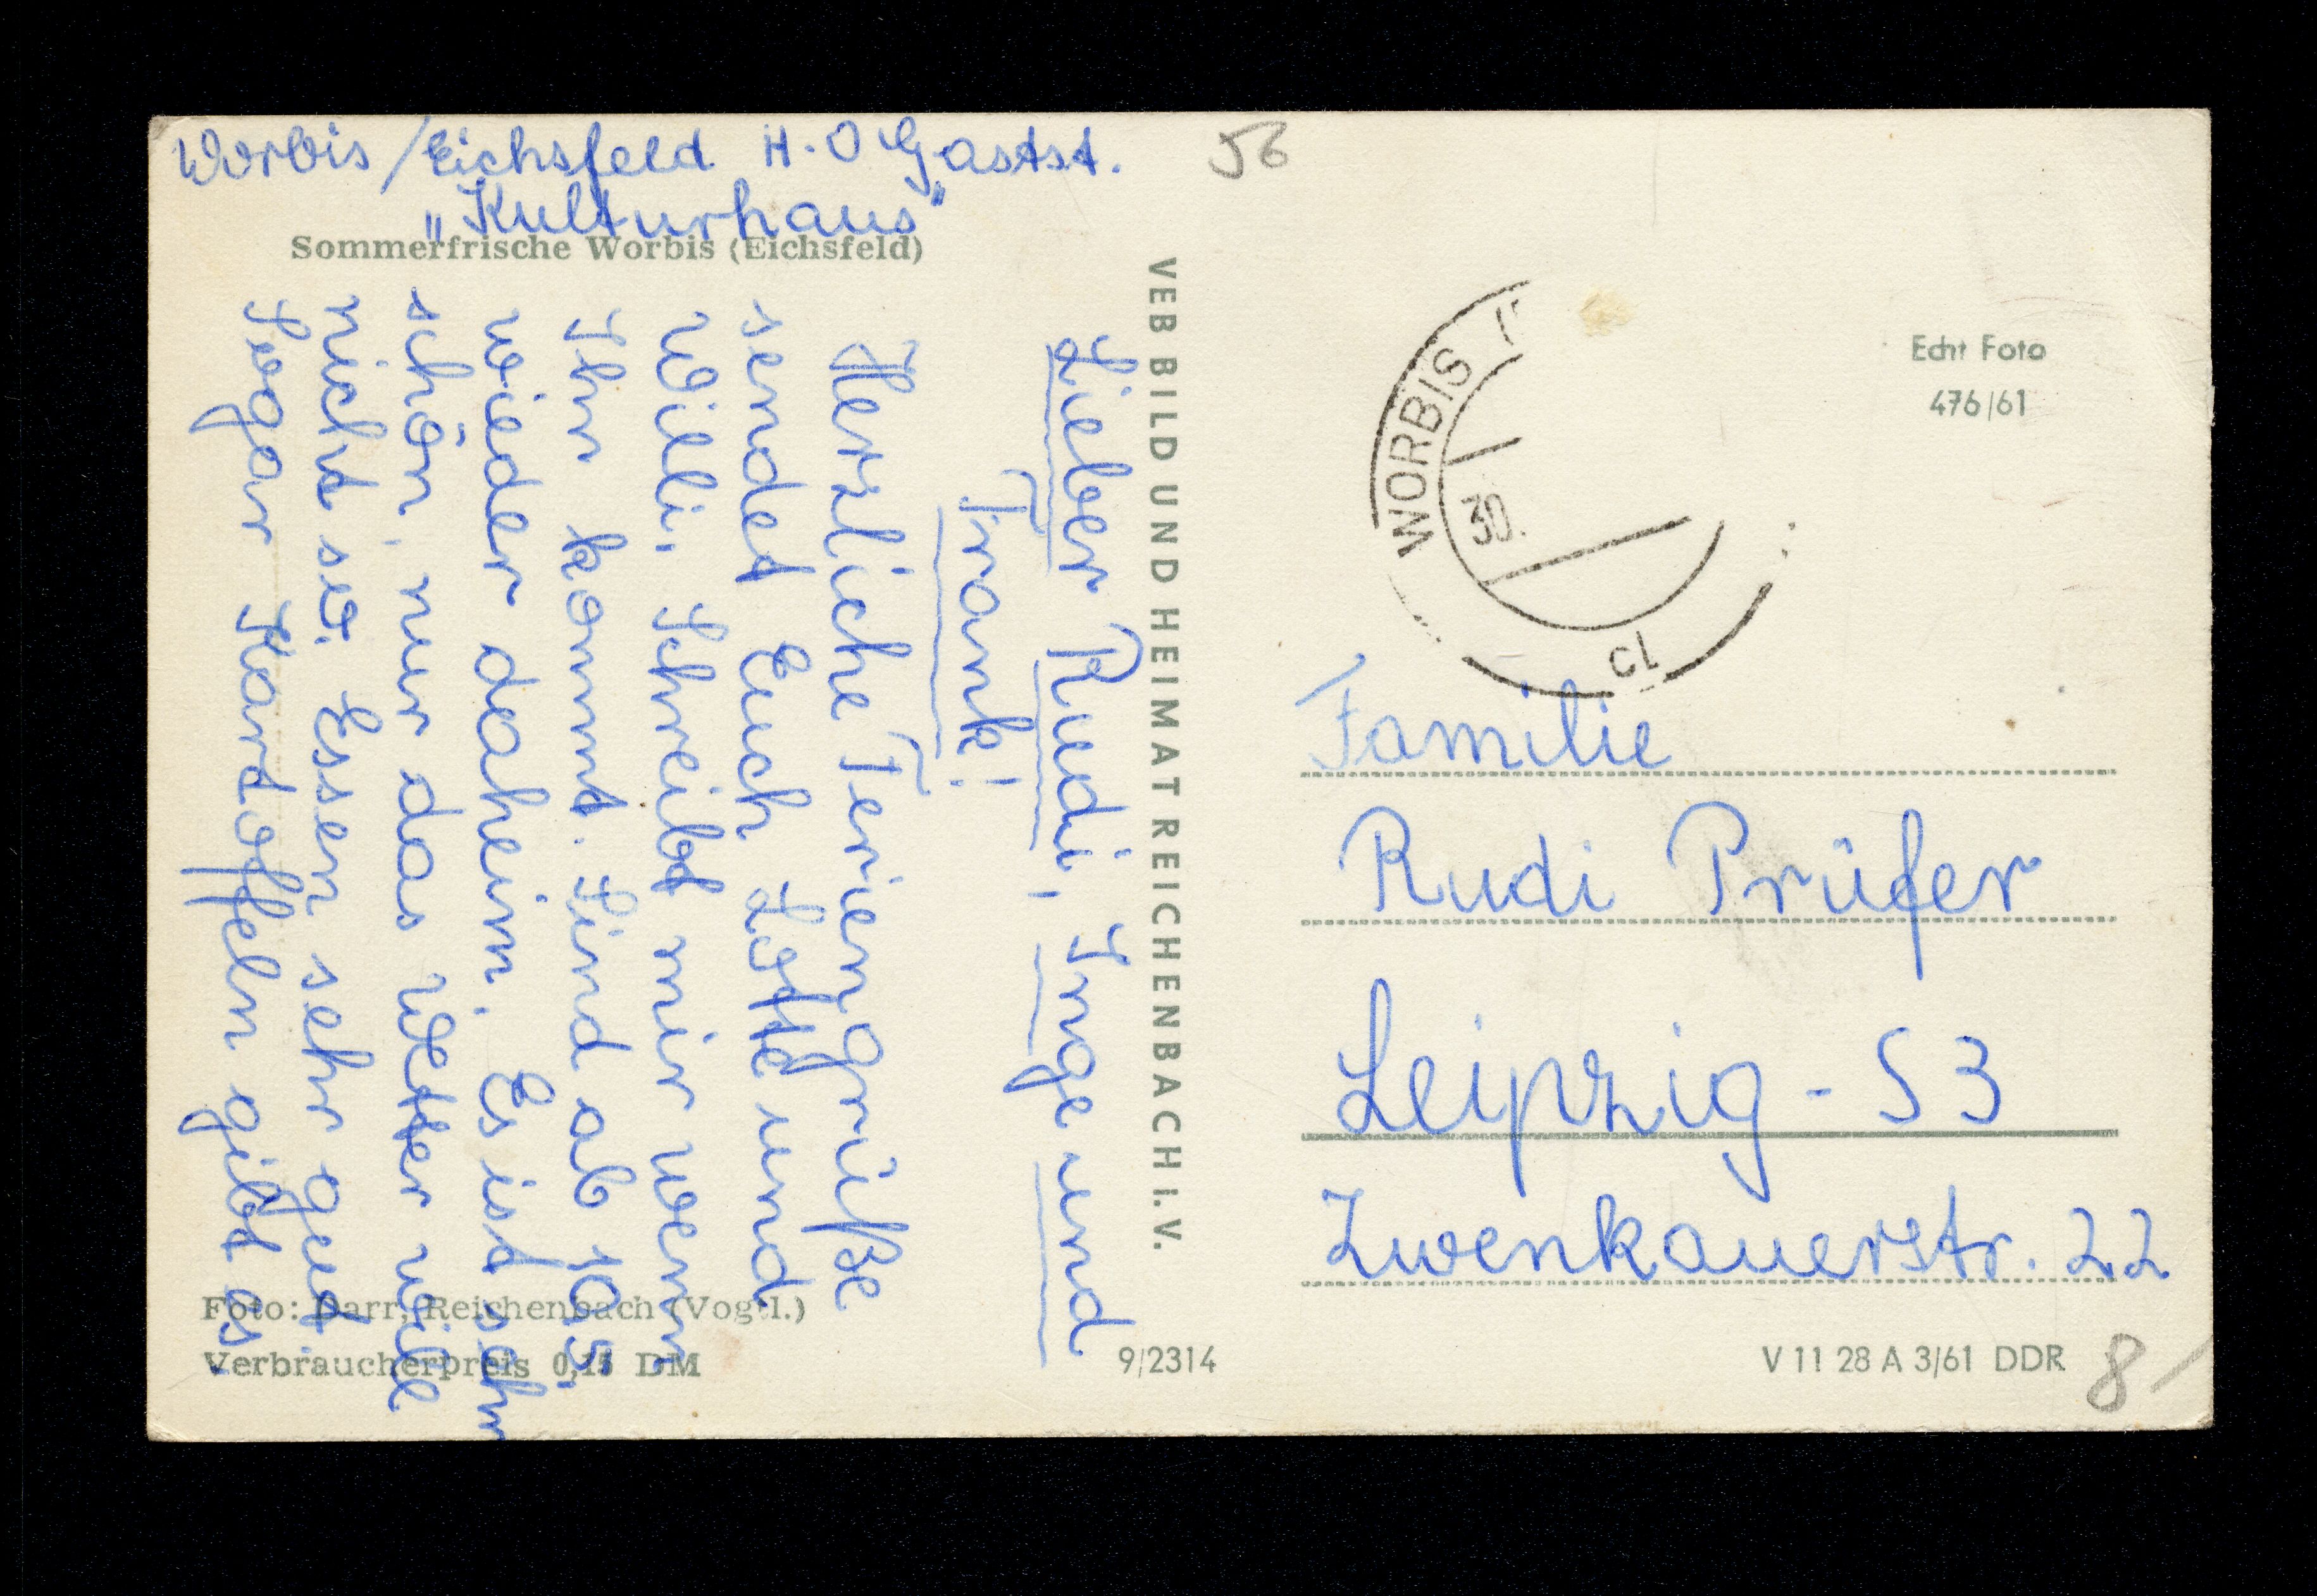 Worbis/Eichsfeld H.O Gastst.
„Kulturhaus"
Sommerfrische Worbis (Eichsfeld)
Lieber Rudi, Inge und
Frank!
Herzliche Feriengrüße
sendet Euch Lotte und
Willi. Schreibt mir wenn
Ihr kommt. Sind ab 10.5.
wieder daheim. Es ist sehr
schön, nur das Wetter will
nicht so. Essen sehr gut.
Sogar Kartoffeln gibt es.
Foto: Darr, Reichenbach (Vogtl.)
Verbraucherpreis 0,15 DM
VEB BILD UND HEIMAT REICHENBACH I. V.
9/2314
56
Echt Foto
476/61
WORBIS
30.
Familie
Rudi Prüfer
Leipzig - S3
Zwenkauerstr. 22
V 11 28 A 3/61 DDR
8